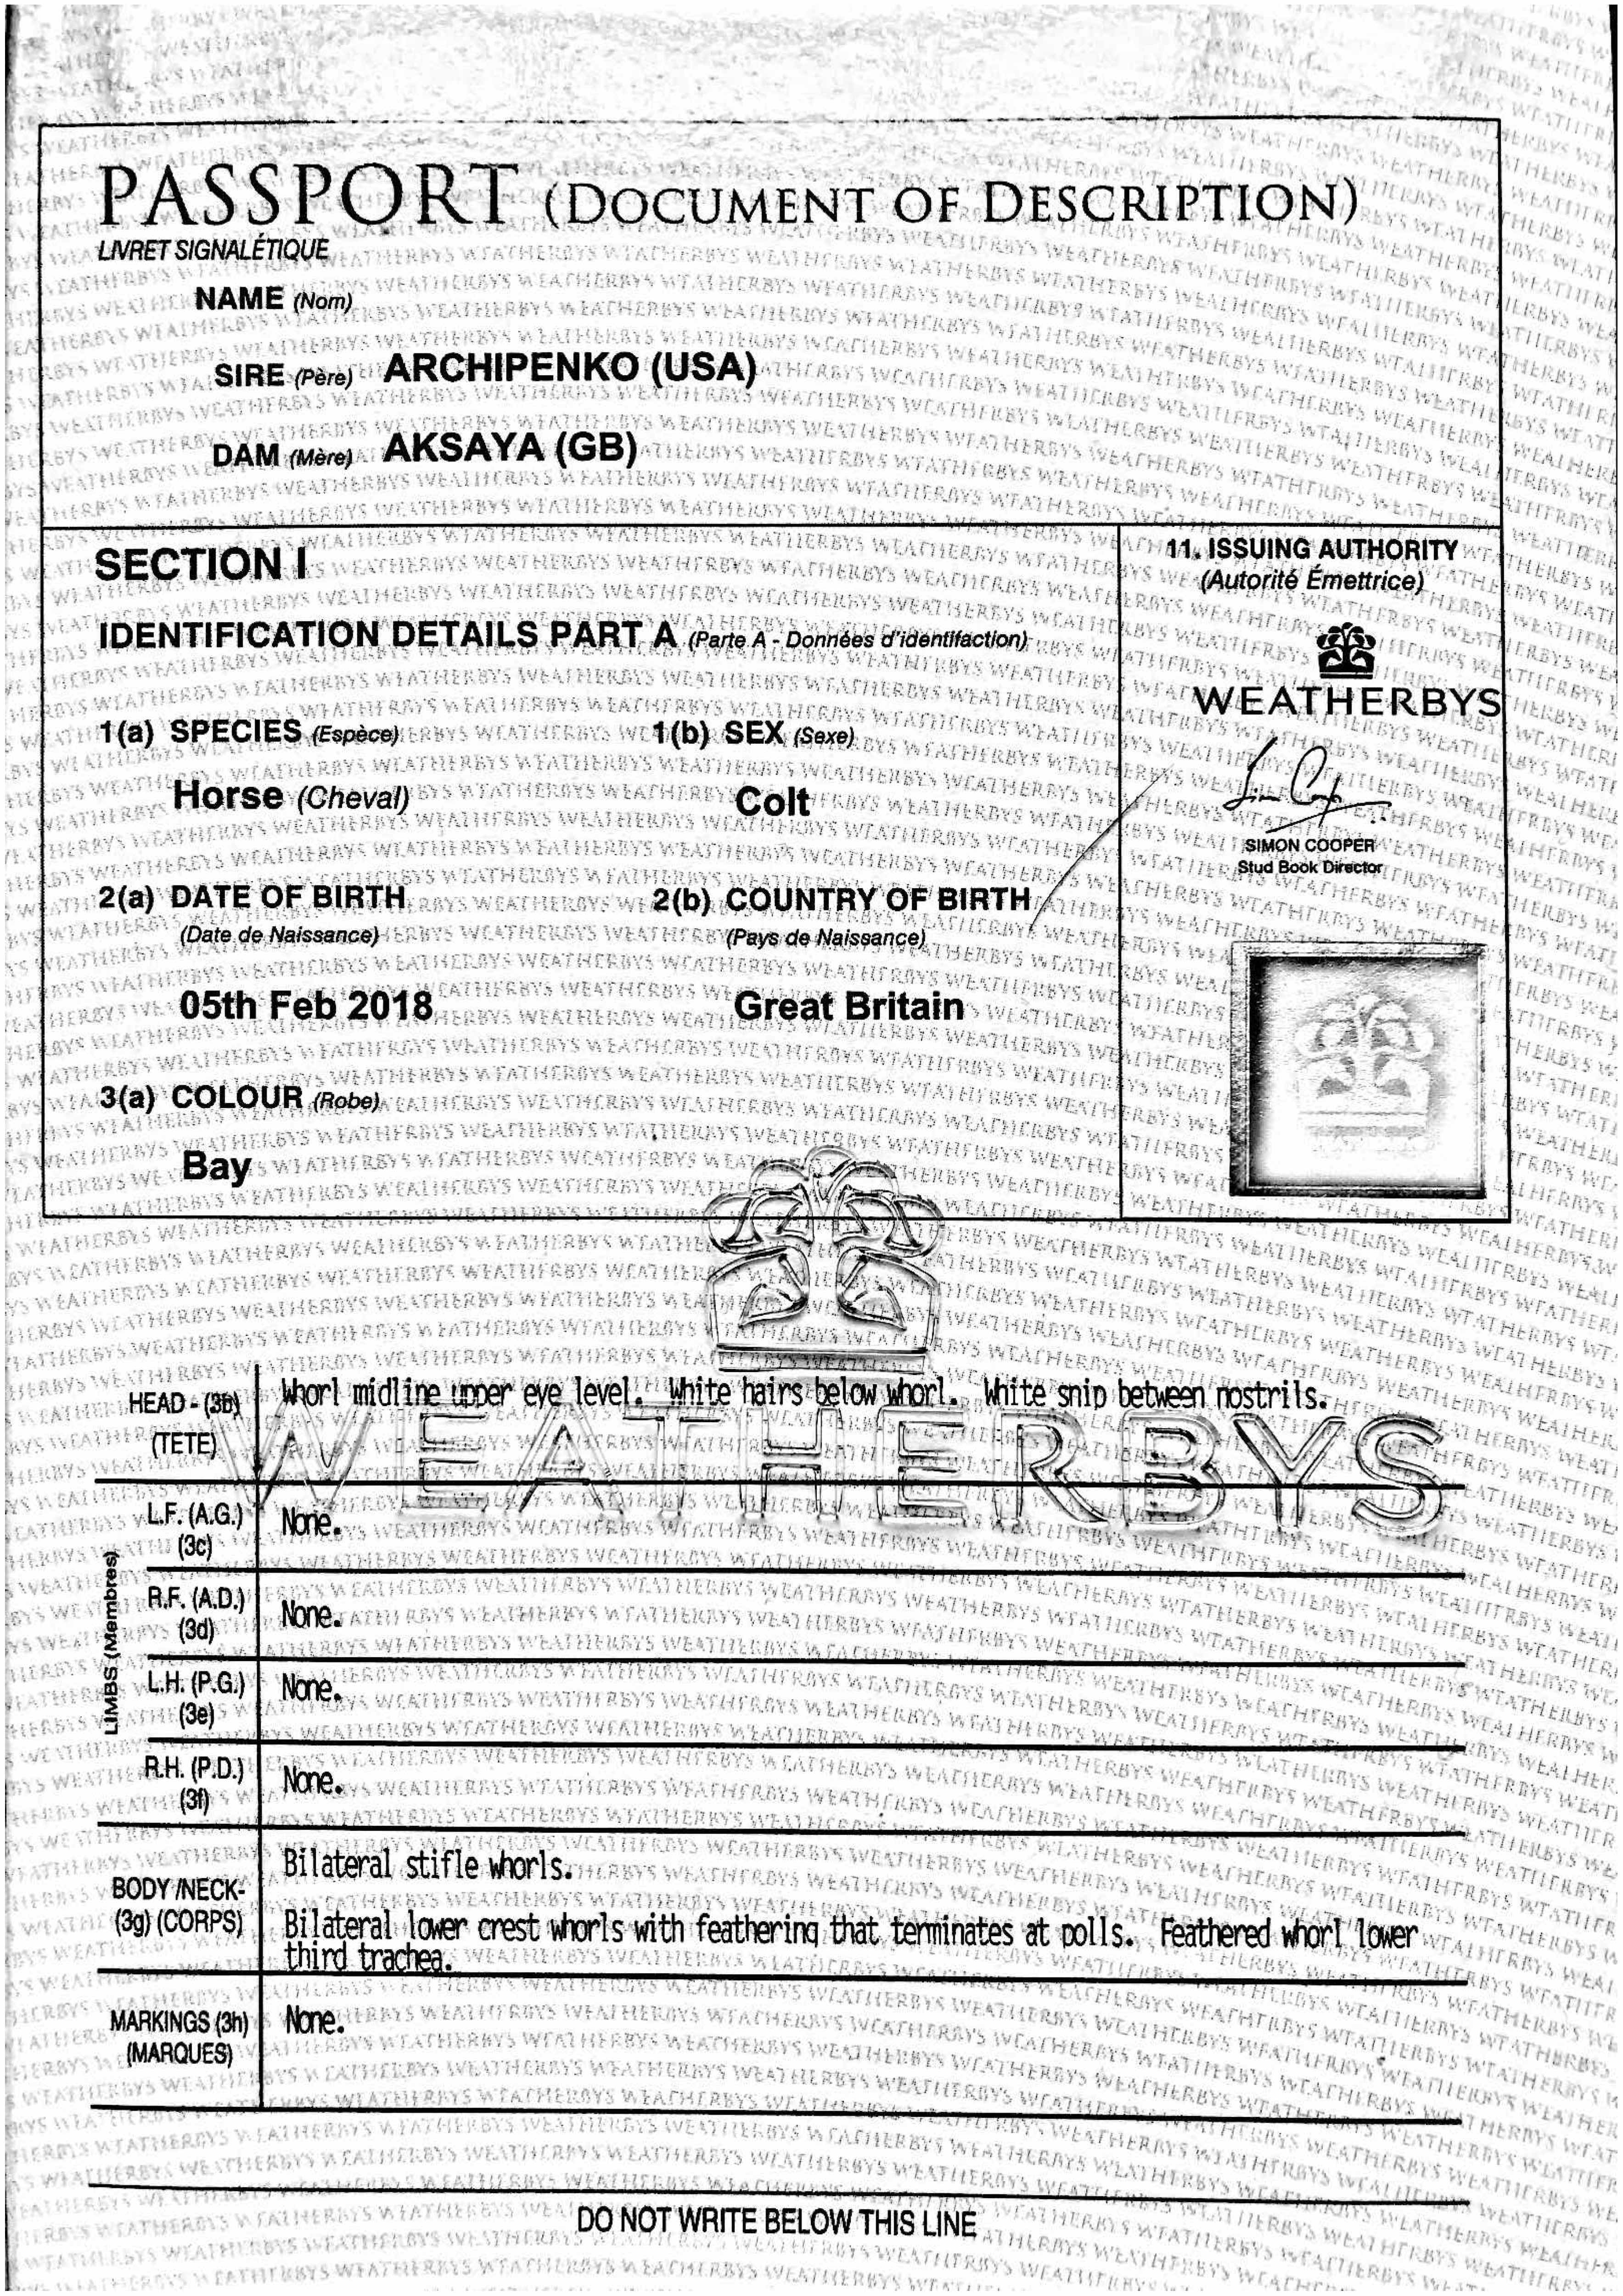 PASSPORT (DOCUMENT OF DESCRIPTION)
LIVRET SIGNALÉTIQUE
NAME (Nom)
SIRE (Père) ARCHIPENKO (USA)
DAM (Mère) AKSAYA (GB)
SECTION I
IDENTIFICATION DETAILS PART A (Parte A - Données d'identifaction)
1(a) SPECIES (Espèce) 1(b) SEX (Sexe)
Horse (Cheval) Colt
2(a) DATE OF BIRTH 2(b) COUNTRY OF BIRTH
(Date de Naissance) (Pays de Naissance)
05th Feb 2018 Great Britain
3(a) COLOUR (Robe)
Bay
11. ISSUING AUTHORITY
(Autorité Émettrice)
WEATHERBYS
SIMON COOPER
Stud Book Director
WEATHERBYS
HEAD - (3b) Whorl midline upper eye level. White hairs below whorl. White snip between nostrils.
(TETE)
LIMBS (Membres)
L.F. (A.G.) None.
(3c)
R.F. (A.D.) None.
(3d)
L.H. (P.G.) None.
(3e)
R.H. (P.D.) None.
(3f)
Bilateral stifle whorls.
BODY/NECK-
(3g) (CORPS) Bilateral lower crest whorls with feathering that terminates at polls. Feathered whorl lower
third trachea.
MARKINGS (3h) None.
(MARQUES)
DO NOT WRITE BELOW THIS LINE